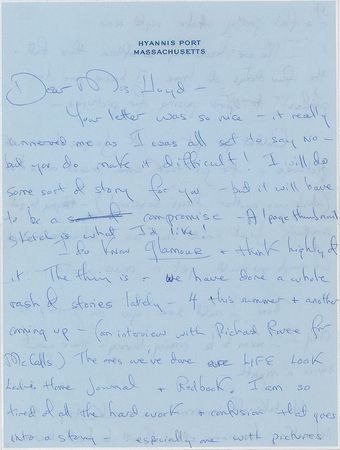 HYANNIS PORT
MASSACHUSETTS
Dear Miss Lloyd –
Your letter was so nice – it really
unnerved me as I was all set to say no –
but you do make it difficult! I will do
some sort of story for you – but it will have
to be a sort of compromise – A 1 page thumbnail
sketch is what I'd like!
I do know Glamour + think highly of
it The thing is – we have done a whole
rash of stories lately – 4 this summer + another
coming up – (an interview with Richard for
McCalls) The ones we've done are LIFE LOOK
Ladies Home Journal + Redbook. I am so
tired of all the hard work + confusion that goes
into a story – especially one with pictures